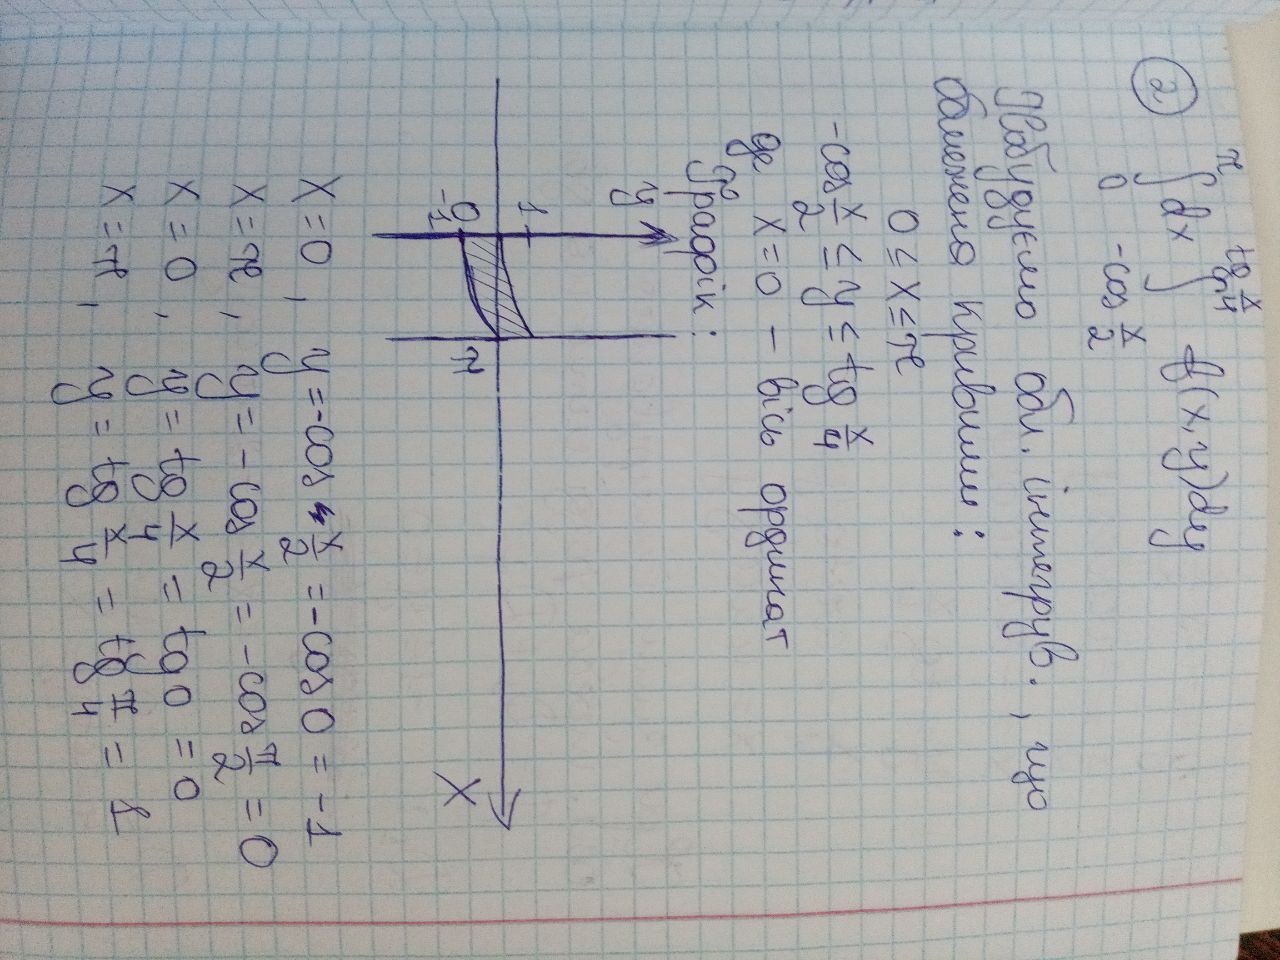 2 ∫₀^π dx ∫_{-cos x/2}^{tg x/4} f(x,y)dy
Побудуємо обл. інтегрув., що
обмежена кривими:
0 ≤ x ≤ π
-cos x/2 ≤ y ≤ tg x/4
де x=0 – вісь ординат
Графік:
y
1
0
-1
π
X
x=0, y=-cos x/2 = -cos 0 = -1
x=π, y= -cos x/2 = -cos π/2 = 0
x=0, y= tg x/4 = tg 0 = 0
x=π, y= tg x/4 = tg π/4 = 1